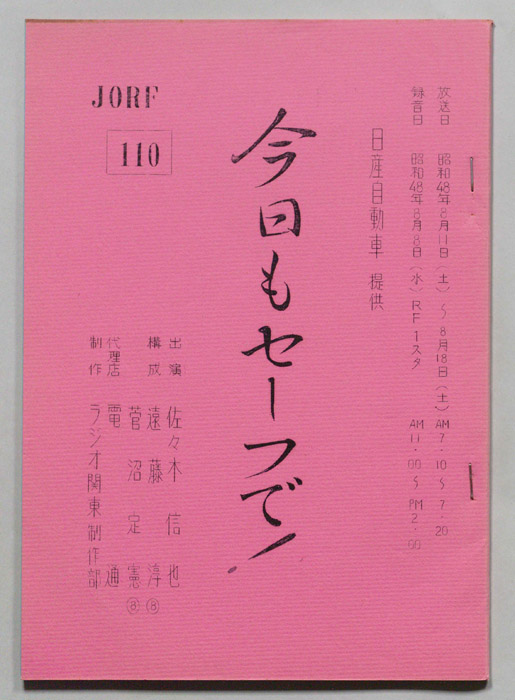 放送日 昭和48年8月11日(土)〜8月18日(土)AM7.10〜7.20
録音日 昭和48年8月8日(水)RF1スタ AM11.00〜PM2.00
日産自動車 提供
今日もセーフで!
JORF
110
出演 佐々木信也
構成 遠藤淳⑧
菅沼定憲⑧
代理店 電通
制作 ラジオ関東制作部